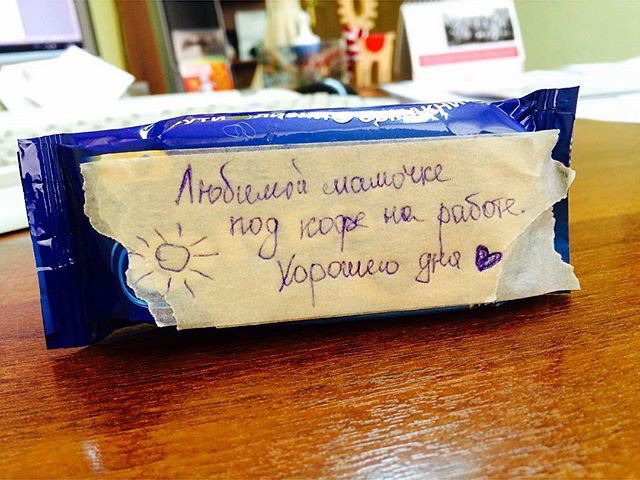 Любимой мамочке
под кофе на работе.
Хорошего дня